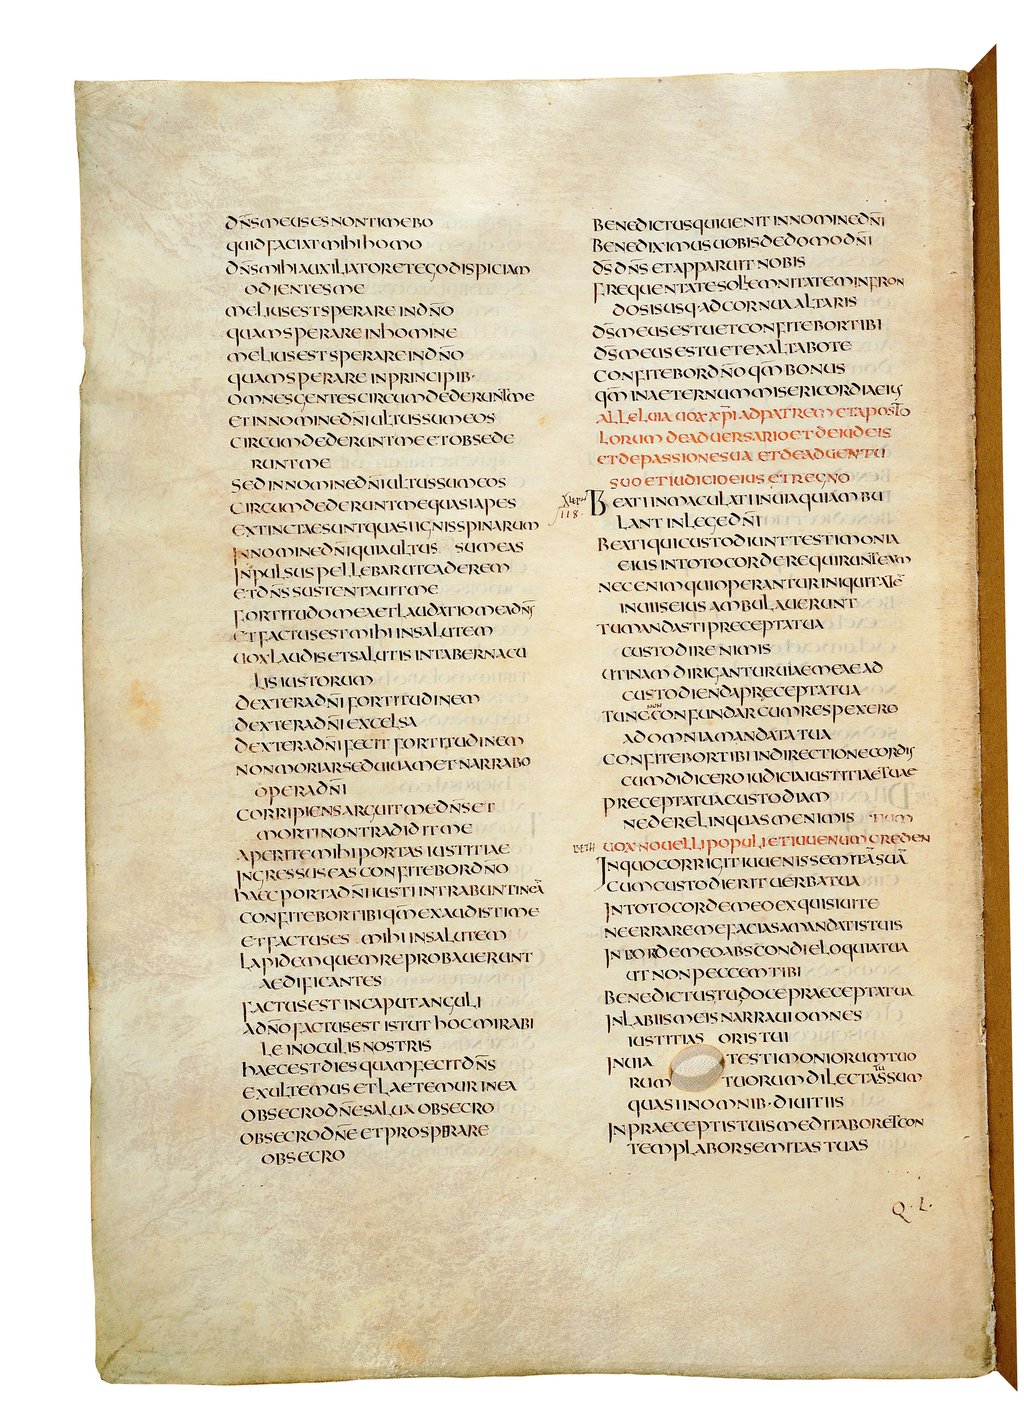 DN̄S MEUS ES NON TIMEBO
QUID FACIAT MIHI HOMO
DN̄S MIHI AUXILIATOR ET EGO DISPICIAM
ODIENTES ME
MELIUS EST SPERARE IN DN̄O
QUAM SPERARE IN HOMINE
MELIUS EST SPERARE IN DN̄O
QUAM SPERARE IN PRINCIPIB·
OMNES GENTES CIRCUMDEDERUNT ME
ET IN NOMINE DN̄I ULTUS SUM EOS
CIRCUMDEDERUNT ME ET OBSEDE
RUNT ME
SED IN NOMINE DN̄I ULTUS SUM EOS
CIRCUMDEDERUNT ME QUASI APES
EXTINCTAE SUNT QUASI IGNIS SPINARUM
IN NOMINE DN̄I QUIA ULTUS SUM EAS
INPULSUS PELLEBAR UT CADEREM
ET DN̄S SUSTENTAUIT ME
FORTITUDO MEA ET LAUDATIO MEA DN̄S
ET FACTUS EST MIHI IN SALUTEM
UOX LAUDIS ET SALUTIS IN TABERNACU
LIS IUSTORUM
DEXTERA DN̄I FORTITUDINEM
DEXTERA DN̄I EXCELSA
DEXTERA DN̄I FECIT FORTITUDINEM
NON MORIAR SED UIUAM ET NARRABO
OPERA DN̄I
CORRIPIENS ARGUIT ME DN̄S ET
MORTI NON TRADIDIT ME
APERITE MIHI PORTAS IUSTITIAE
INGRESSUS EAS CONFITEBOR DN̄O
HAEC PORTA DN̄I IUSTI INTRABUNT IN EĀ
CONFITEBOR TIBI QM̄ EXAUDISTI ME
ET FACTUS ES MIHI IN SALUTEM
LAPIDEM QUEM REPROBAUERUNT
AEDIFICANTES
FACTUS EST IN CAPUT ANGULI
A DN̄O FACTUS EST ISTUT HOC MIRABI
LE IN OCULIS NOSTRIS
HAEC EST DIES QUAM FECIT DN̄S
EXULTEMUS ET LAETEMUR IN EA
OBSECRO DN̄E SALUA OBSECRO
OBSECRO DN̄E ET PROSPERARE
OBSECRO
BENEDICTUS QUI UENIT IN NOMINE DN̄I
BENEDIXIMUS UOBIS DE DOMO DN̄I
DS̄ DN̄S ET APPARUIT NOBIS
FREQUENTATE SOLLEMNITATEM IN FRON
DOSIS USQ· AD CORNUA ALTARIS
DS̄ MEUS ES TU ET CONFITEBOR TIBI
DS̄ MEUS ES TU ET EXALTABO TE
CONFITEBOR DN̄O QM̄ BONUS
QM̄ IN AETERNUM MISERICORDIA EIUS
ALLELUIA UOX XP̄I AD PATREM ET APOSTO
LORUM DE ADUERSARIO ET DE IUDEIS
ET DE PASSIONE SUA ET DE ADUENTU
SUO ET IUDICIO EIUS ET REGNO
118.
BEATI INMACULATI IN UIA QUI AMBU
LANT IN LEGE DN̄I
BEATI QUI CUSTODIUNT TESTIMONIA
EIUS IN TOTO CORDE REQUIRUNT EUM
NEC ENIM QUI OPERANTUR INIQUITATĒ
IN UIIS EIUS AMBULAUERUNT
TU MANDASTI PRECEPTA TUA
CUSTODIRE NIMIS
UTINAM DIRIGANTUR UIAE MEAE AD
CUSTODIENDA PRECEPTA TUA
TUNC NON CONFUNDAR CUM RESPEXERO
AD OMNIA MANDATA TUA
CONFITEBOR TIBI IN DIRECTIONE CORDIS
CUM DIDICERO IUDICIA IUSTITIAE TUAE
PRECEPTA TUA CUSTODIAM
NE DERELINQUAS ME NIMIS TIUM
BETH UOX NOUELLI POPULI ET IUUENUM CREDEN
IN QUO CORRIGIT IUUENIS SEMITĀ SUĀ
CUM CUSTODIERIT UERBA TUA
IN TOTO CORDE MEO EXQUISIUI TE
NE ERRARE ME FACIAS A MANDATIS TUIS
IN CORDE MEO ABSCONDI ELOQUIA TUA
UT NON PECCEM TIBI
BENEDICTUS TU DOCE PRAECEPTA TUA
IN LABIIS MEIS NARRAUI OMNES
IUSTITIAS ORIS TUI
IN UIA TESTIMONIORUM TUO
RUM TUORUM DILECTATUS SUM
QUASI IN OMNIB· DIUITIIS
IN PRAECEPTIS TUIS MEDITABOR ET CON
TEMPLABOR SEMITAS TUAS
Q·L·